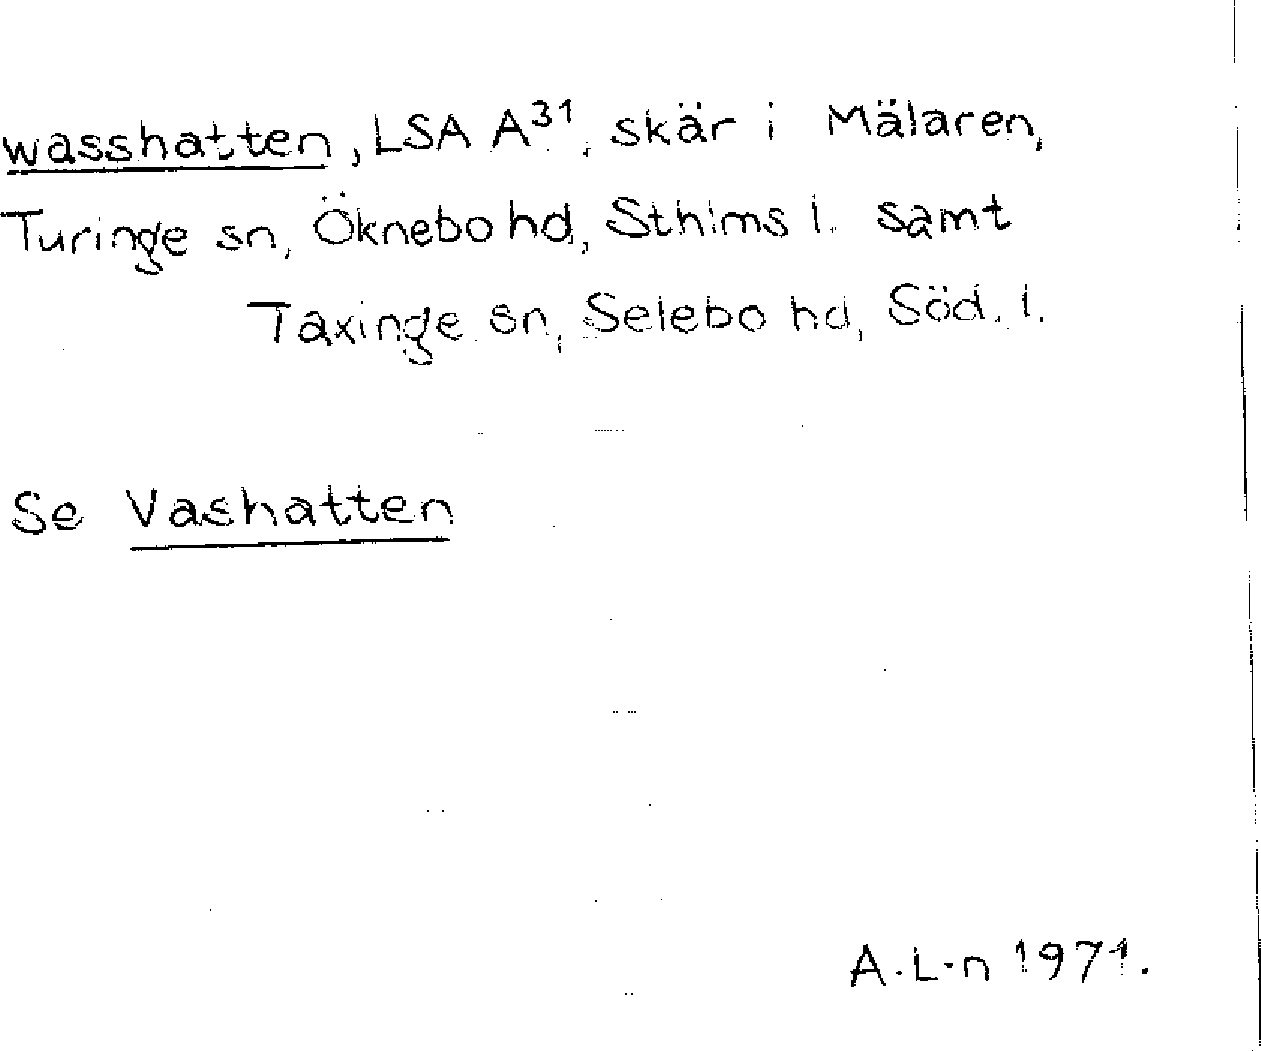 wasshatten, LSA A³¹, skär i Mälaren,
Turinge sn, Öknebo hd, Sthlms l. samt
Taxinge sn, Selebo hd, Söd. l.
Se Vashatten
A.L-n 1971.